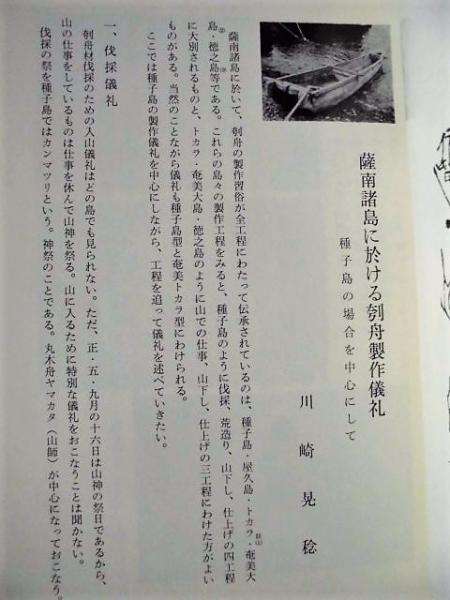 薩南諸島に於ける刳舟製作儀礼
種子島の場合を中心にして
川崎晃稔
薩南諸島に於いて、刳舟の製作習俗が全工程にわたって伝承されているのは、種子島・屋久島・トカラ・奄美大
島・徳之島等である。これらの島々の製作工程をみると、種子島のように伐採、荒造り、山下し、仕上げの四工程
に大別されるものと、トカラ・奄美大島・徳之島のように山での仕事、山下し、仕上げの三工程にわけた方がよい
ものがある。当然のことながら儀礼も種子島型と奄美トカラ型にわけられる。
ここでは種子島の製作儀礼を中心にしながら、工程を追って儀礼を述べていきたい。
一、伐採儀礼
刳舟材伐採のための入山儀礼はどの島でも見られない。ただ、正・五・九月の十六日は山神の祭日であるから、
山の仕事をしているものは仕事を休んで山神を祭る。山に入るために特別な儀礼をおこなうことは聞かない。
伐採の祭を種子島ではカンマツリという。神祭のことである。丸木舟ヤマカタ（山師）が中心になっておこなう。